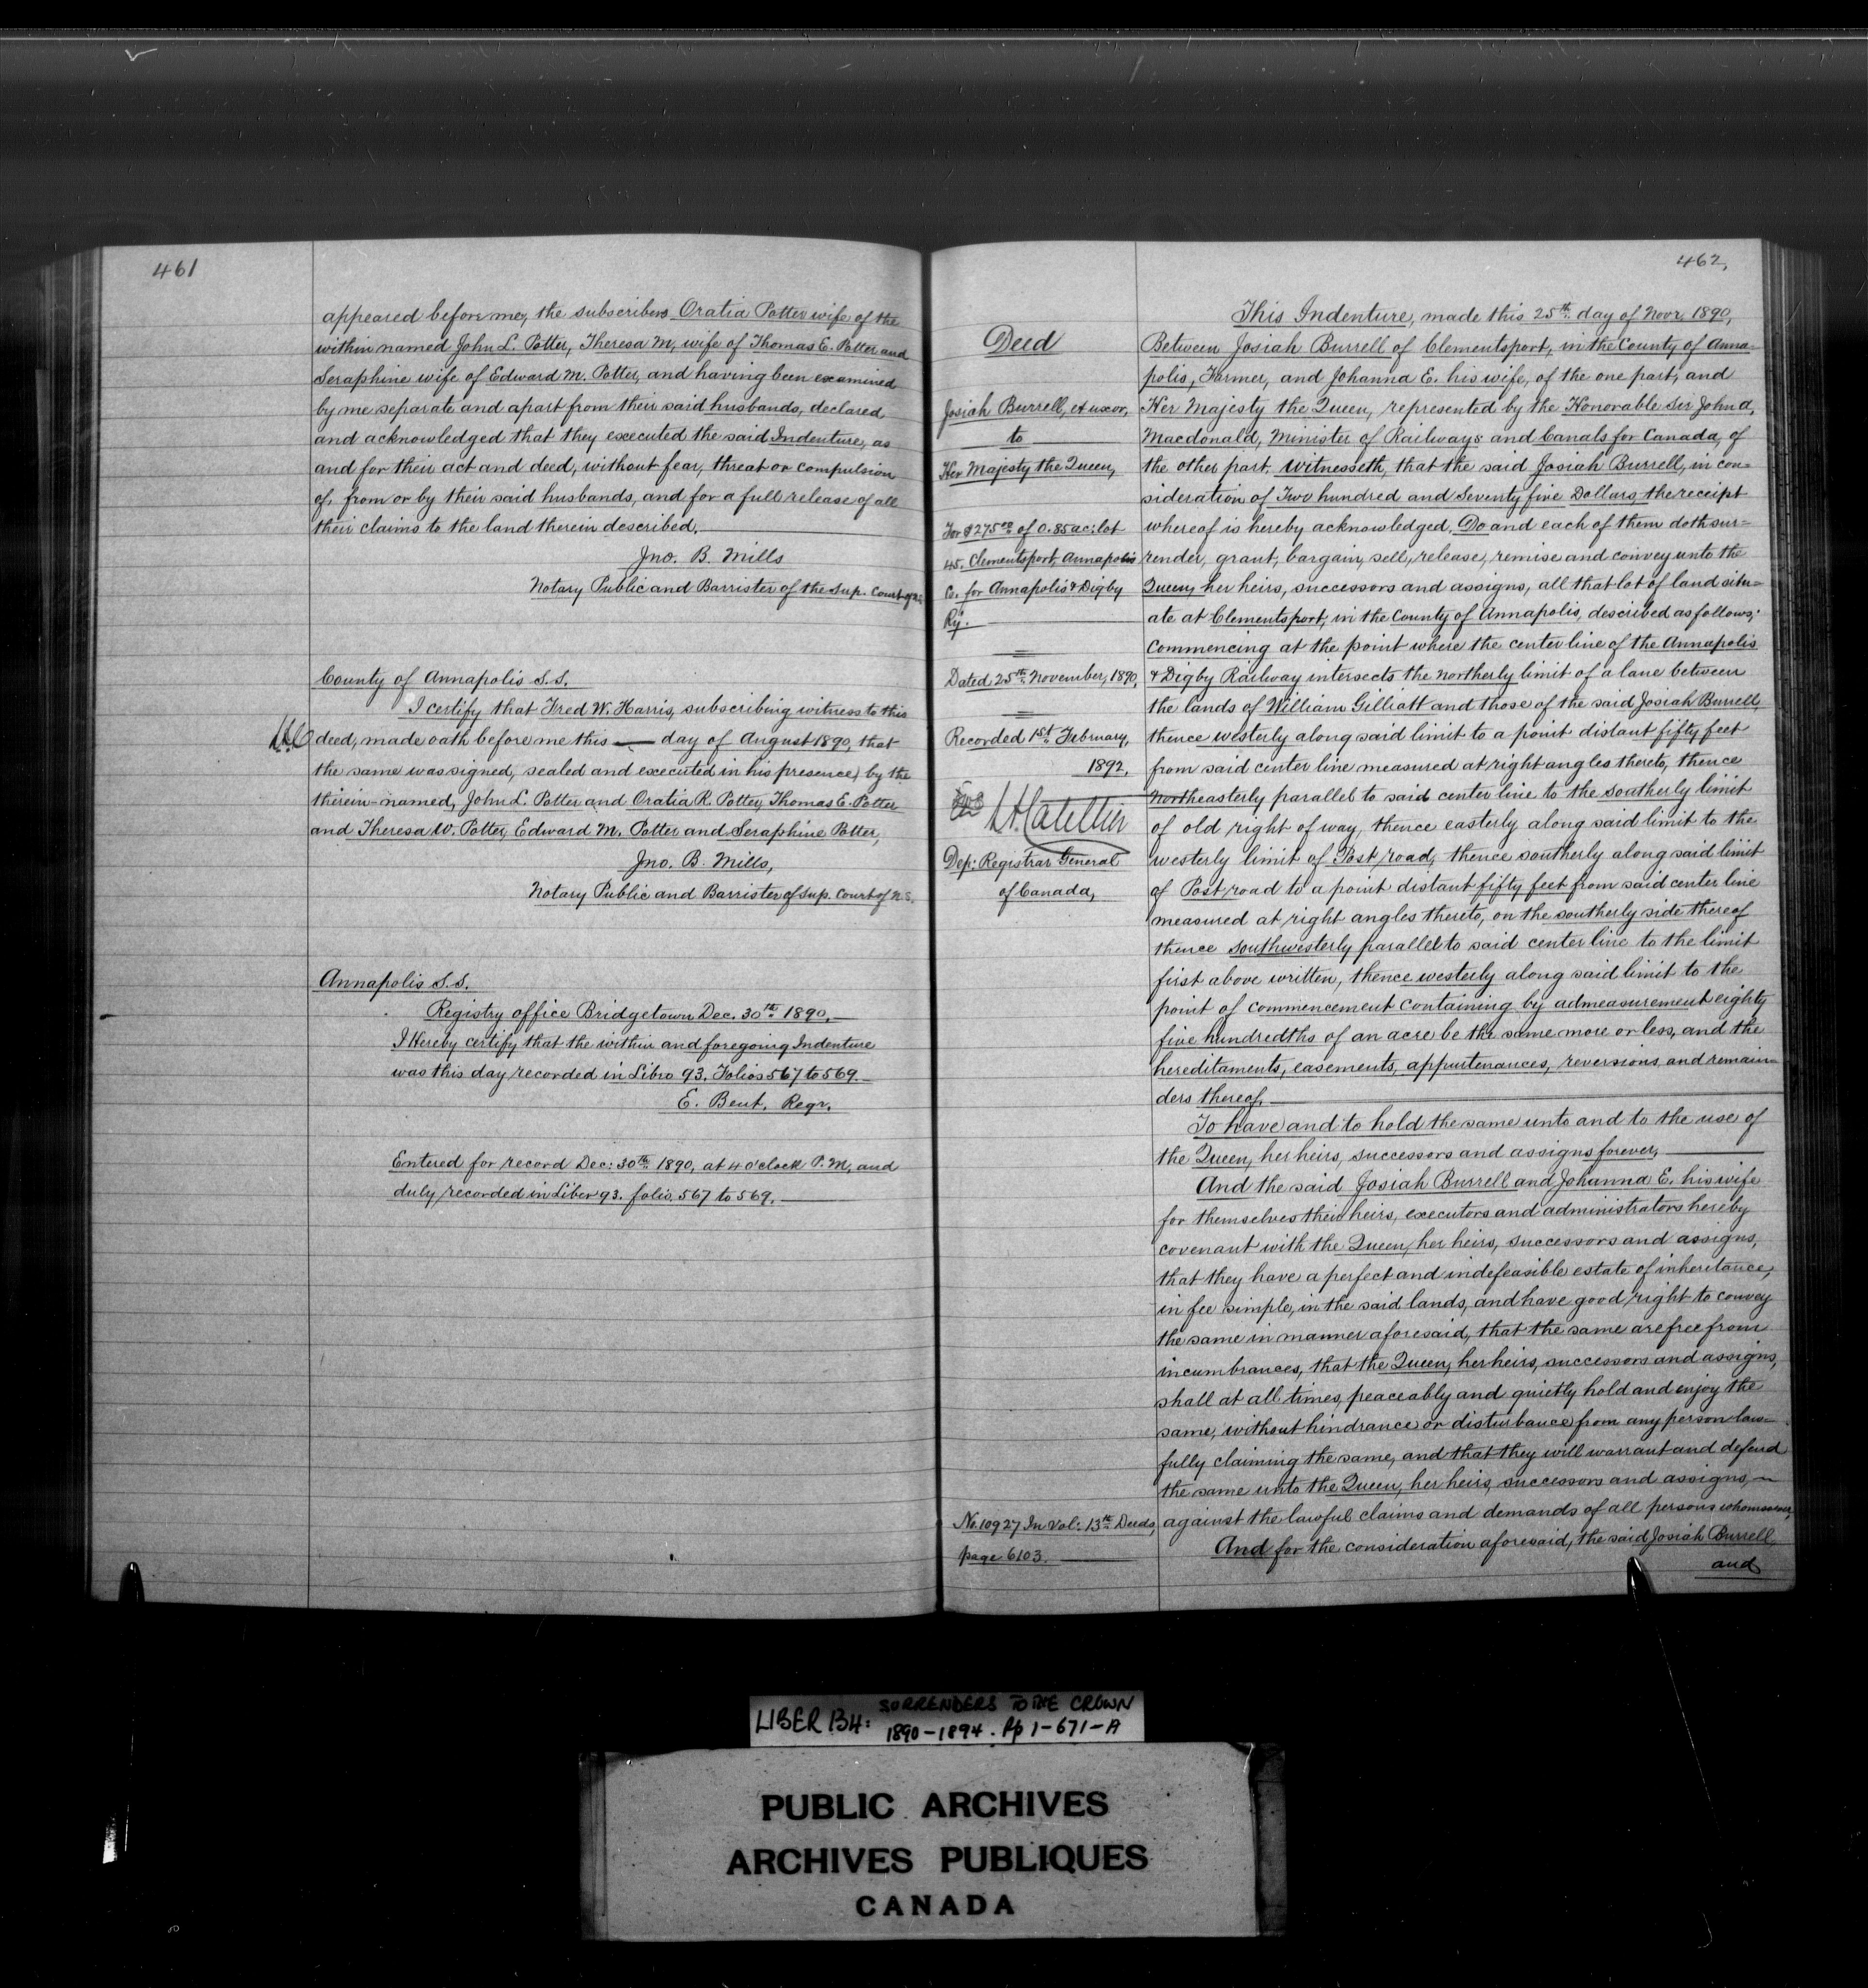 461
appeared before me, the subscribers Oratia Potter wife of the
within named John L. Potter, Theresa M, wife of Thomas E. Potter and
Seraphine wife of Edward M. Potter, and having been examined
by me separate and apart from their said husbands, declared
and acknowledged that they executed the said Indenture, as
and for their act and deed, without fear, threat or compulsion
of, from or by their said husbands, and for a full release of all
their claims to the land therein described.
Jno. B. Mills
Notary Public and Barrister of the Sup. Court of
County of Annapolis S.S.
I certify that Fred W. Harris, subscribing witness to this
deed, made oath before me this — day of August 1890, that
the same was signed, sealed and executed in his presence by the
therein-named, John L. Potter and Oratia R. Potter, Thomas E. Potter
and Theresa W. Potter, Edward M. Potter and Seraphine Potter,
Jno. B. Mills,
Notary Public and Barrister of Sup. Court of N.S.
Annapolis S.S.
Registry office Bridgetown Dec. 30th 1890.
I Hereby certify that the within and foregoing Indenture
was this day recorded in Libro 93. Folios 567 to 569.
E. Bent. Regr.
Entered for record Dec: 30th 1890, at 4 o'clock P.M, and
duly recorded in Liber 93. folio 567 to 569.
462,
Deed
Josiah Burrell, et uxor,
to
Her Majesty the Queen,
For $275.00 of 0.85 ac: lot
45. Clementsport, Annapolis
Co. for Annapolis & Digby
Ry.
Dated 25th November, 1890,
Recorded 1st February,
1892,
Dep: Registrar General
of Canada,
No. 10927 In Vol: 13th Deeds,
page 6103.
This Indenture, made this 25th day of Novr. 1890,
Between Josiah Burrell of Clementsport, in the County of Anna=
polis, Farmer, and Johanna E. his wife, of the one part, and
Her Majesty the Queen, represented by the Honorable Ser John A.
Macdonald, Minister of Railways and Canals for Canada, of
the other part, Witnesseth, that the said Josiah Burrell, in con=
sideration of Two hundred and Seventy five Dollars the receipt
whereof is hereby acknowledged, Do and each of them doth sur=
render, grant, bargain, sell, release, remise and convey unto the
Queen, her heirs, successors and assigns, all that lot of land situ=
ate at Clementsport, in the County of Annapolis, described as follows;
Commencing at the point where the center line of the Annapolis
& Digby Railway intersects the Northerly limit of a lane between
the lands of William Gilliatt and those of the said Josiah Burrell,
thence westerly along said limit to a point distant fifty feet
from said center line measured at right angles thereto, thence
Northeasterly parallel to said center line to the Southerly limit
of old right of way, thence easterly along said limit to the
westerly limit of Post road, thence southerly along said limit
of Post road to a point distant fifty feet from said center line
measured at right angles thereto, on the southerly side thereof
thence southwesterly parallel to said center line to the limit
first above written, thence westerly along said limit to the
point of commencement containing by admeasurement eighty
five hundredths of an acre be the same more or less, and the
hereditaments, easements, appurtenances, reversions and remain=
ders thereof,
To have and to hold the same unto and to the use of
the Queen, her heirs, successors and assigns forever,
And the said Josiah Burrell and Johanna E. his wife
for themselves their heirs, executors and administrators hereby
covenant with the Queen, her heirs, successors and assigns,
that they have a perfect and indefeasible estate of inheritance,
in fee simple, in the said lands, and have good right to convey
the same in manner aforesaid, that the same are free from
incumbrances, that the Queen, her heirs, successors and assigns,
shall at all times, peaceably and quietly hold and enjoy the
same, without hindrance or disturbance from any person law=
fully claiming the same, and that they will warrant and defend
the same unto the Queen, her heirs, successors and assigns,
against the lawful claims and demands of all persons whomsoever,
And for the consideration aforesaid, the said Josiah Burrell
and
LIBER B4: SURRENDERS TO THE CROWN
1890-1894. Pp 1-671-A
PUBLIC ARCHIVES
ARCHIVES PUBLIQUES
CANADA